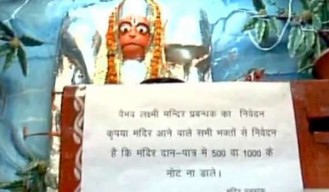 वैभव लक्ष्मी मन्दिर प्रबन्धक का निवेदन
कृपया मंदिर आने वाले सभी भक्तों से निवेदन
है कि मंदिर दान-पात्र में 500 वा 1000 के
नोट ना डाले।